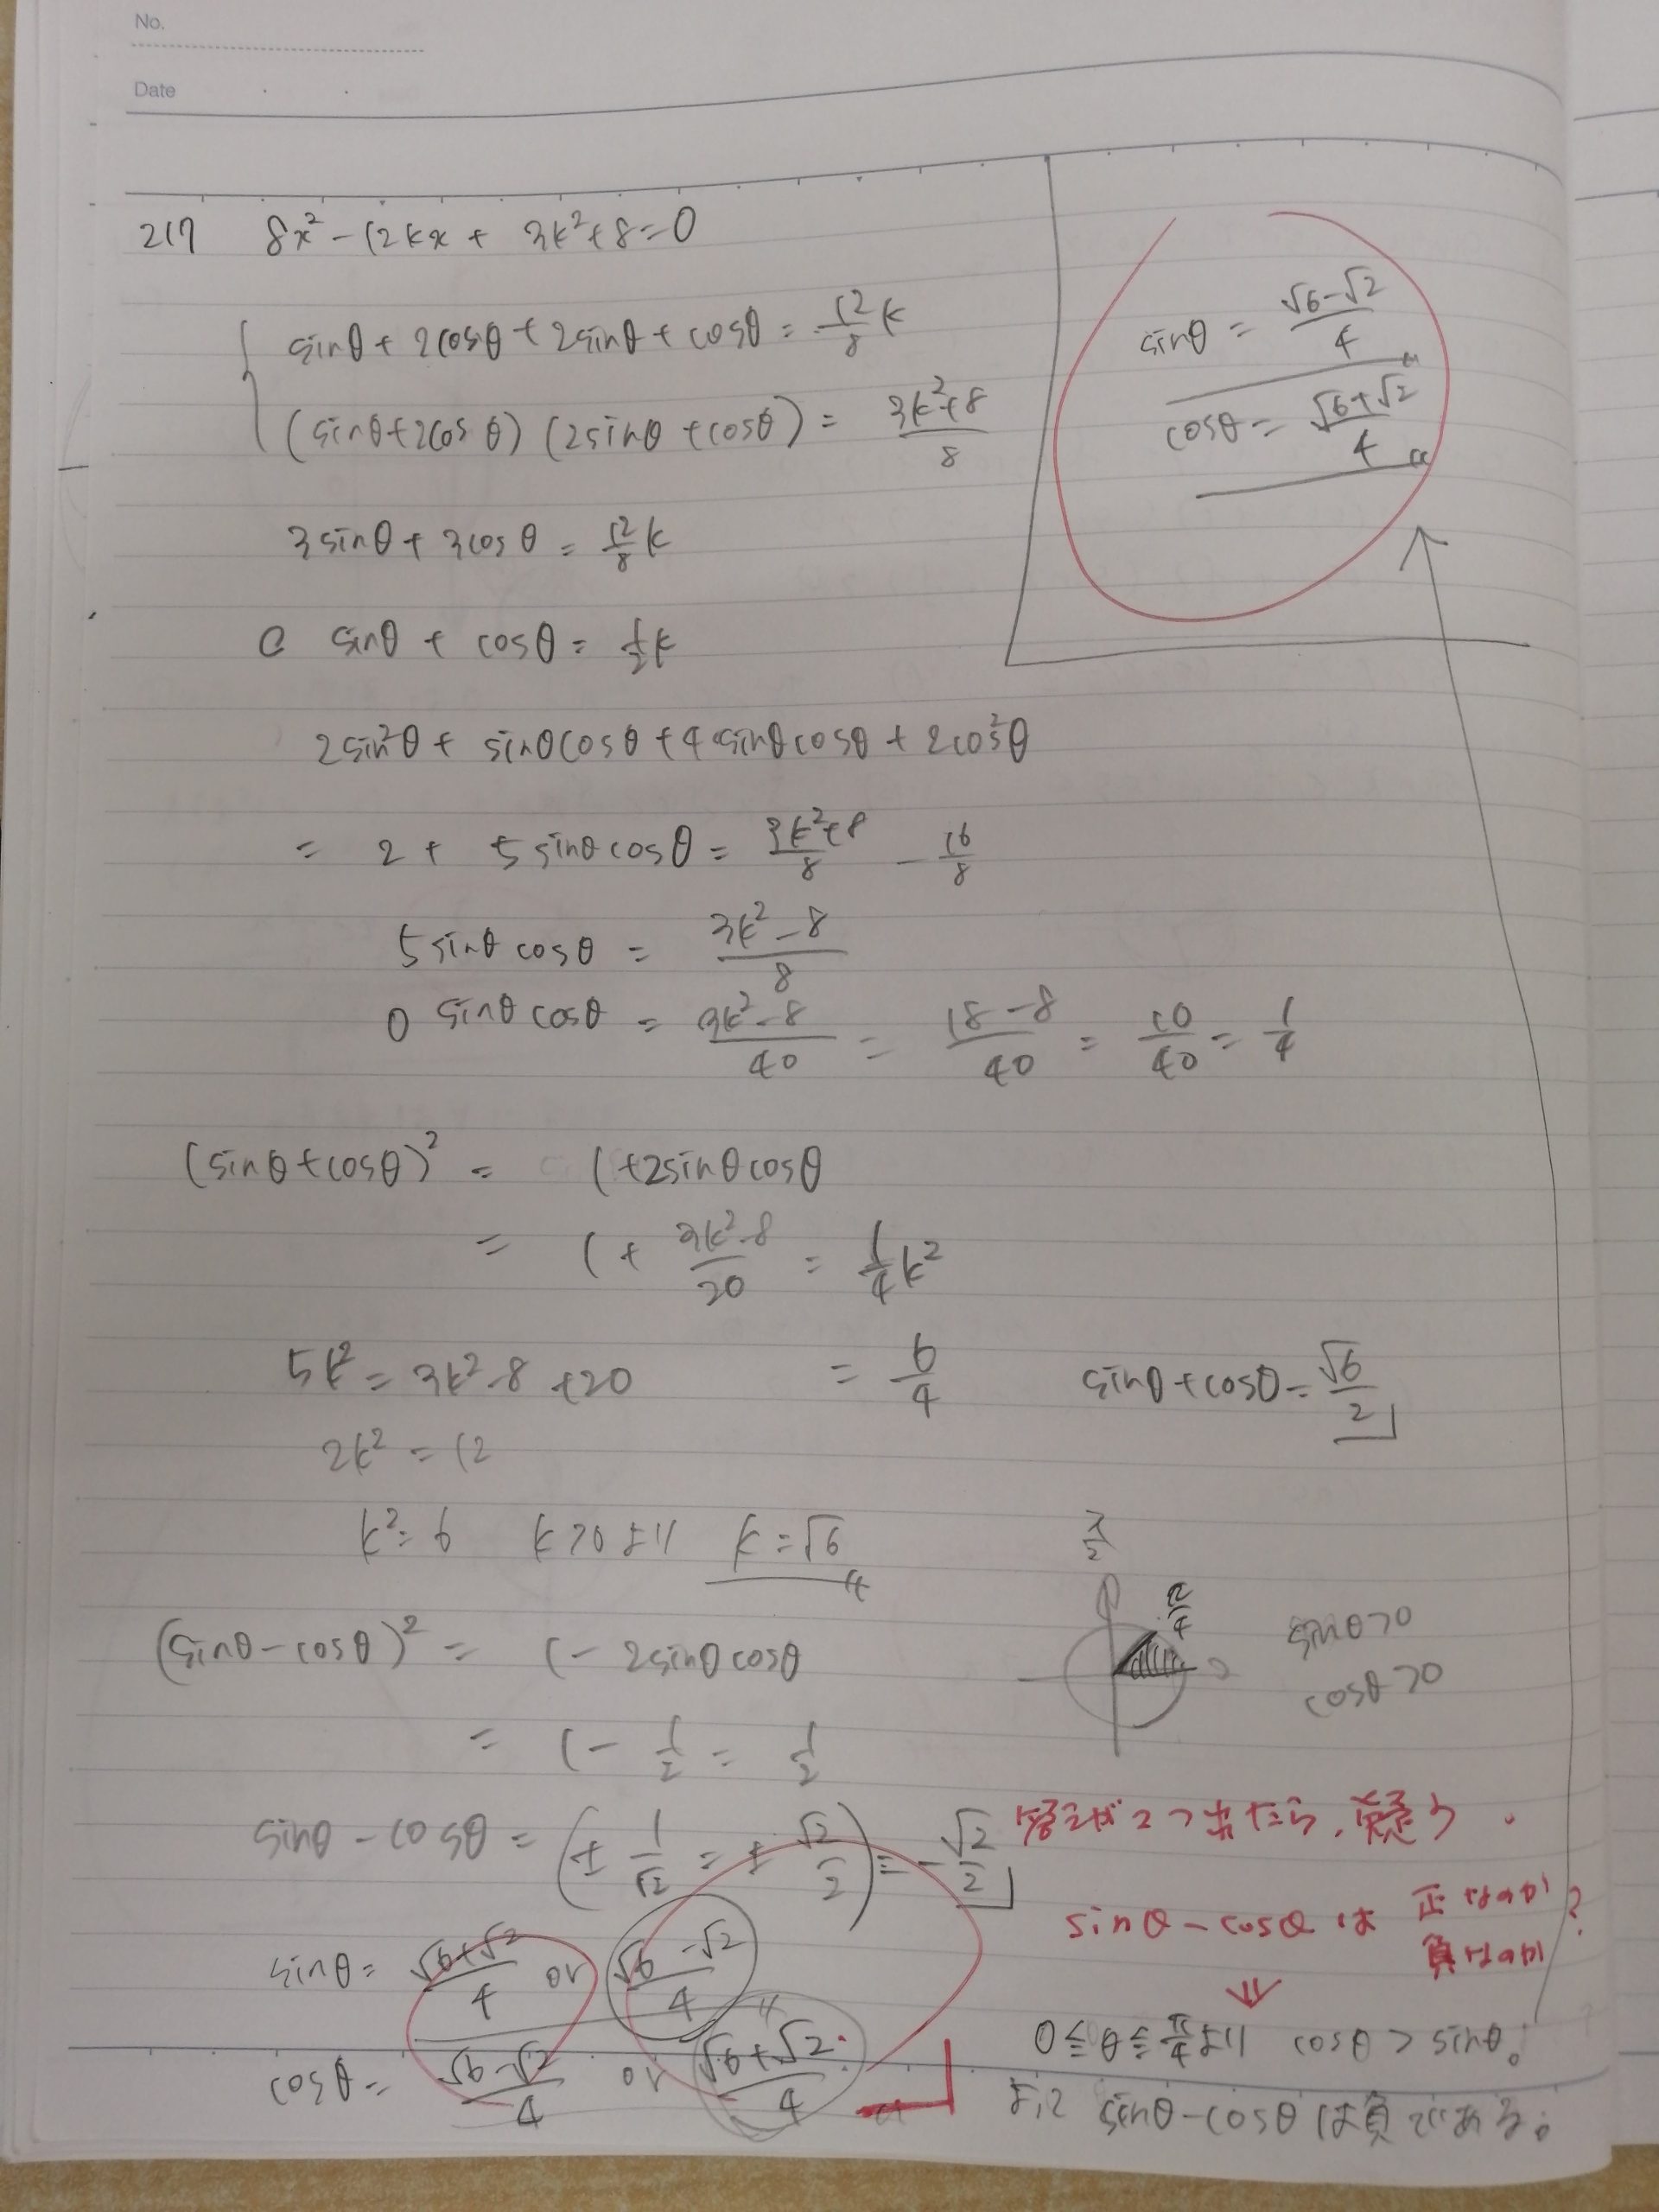 No.
Date
217 8x² - 12kx + 3k² + 8 = 0
sinθ + 2cosθ + 2sinθ + cosθ = 12/8 k
(sinθ + 2cosθ) (2sinθ + cosθ) = (3k² + 8)/8
3sinθ + 3cosθ = 12/8 k
○ sinθ + cosθ = 1/2 k
2sin²θ + sinθcosθ + 4sinθcosθ + 2cos²θ
= 2 + 5sinθcosθ = (3k² + 8)/8 - 16/8
5sinθcosθ = (3k² - 8)/8
○ sinθcosθ = (3k² - 8)/40 = (18 - 8)/40 = 10/40 = 1/4
(sinθ + cosθ)² = 1 + 2sinθcosθ
= 1 + (3k² - 8)/20 = 1/4 k²
5k² = 3k² - 8 + 20 = 6/4 sinθ + cosθ = √6/2
2k² = 12
k² = 6 k > 0 より k = √6
(sinθ - cosθ)² = 1 - 2sinθcosθ
= 1 - 1/2 = 1/2
sinθ - cosθ = (± 1/√2 = ± √2/2) = - √2/2
sinθ = (√6 + √2)/4 or (√6 - √2)/4
cosθ = (√6 - √2)/4 or (√6 + √2)/4
sinθ = (√6 - √2)/4
cosθ = (√6 + √2)/4
π/2
π/4
0
sinθ > 0
cosθ > 0
答えが2つ出たら、疑う.
sinθ - cosθ は 正なのか
負なのか ?
⇓
0 ≦ θ ≦ π/4 より cosθ > sinθ。
よって sinθ - cosθ は負である。